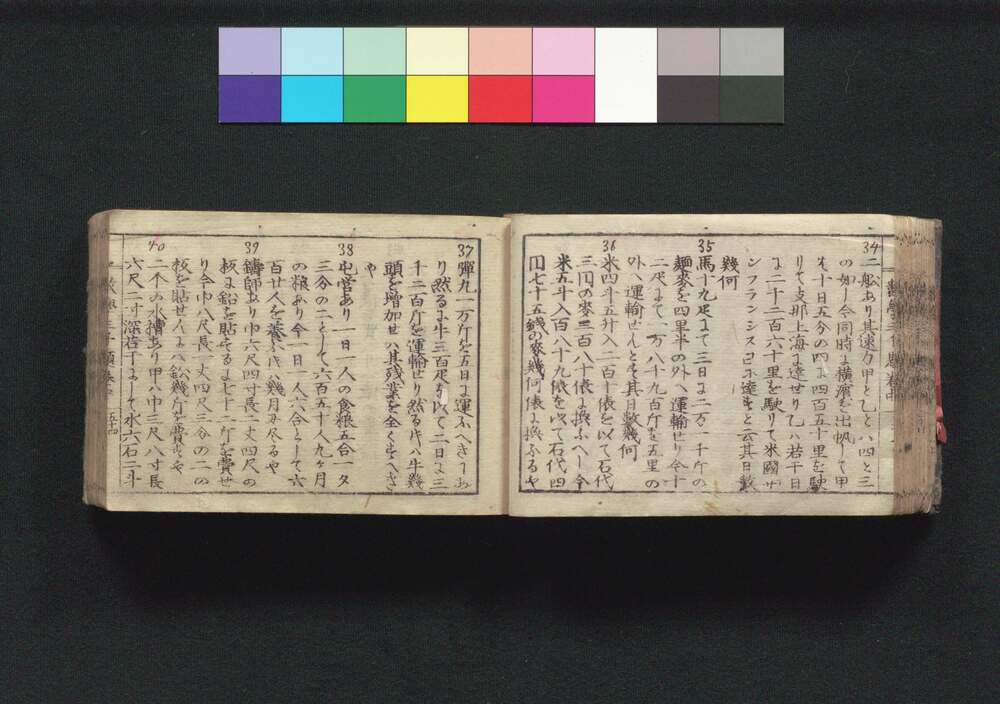 34
二船あり其速力甲と乙とハ四と三
の如し今同時に横濱を出帆して甲
ハ十日五分の四に四百五十里を駛
りて支那上海に達せり乙ハ若干日
に二千二百六十里を駛りて米國サ
ンフランシスコに達すと云其日数
幾何
35
馬十九疋にて三日に二万一千斤の
麺麥を四里半の外へ運輸せり今十
二疋にて一万八千九百斤を五里の
外へ運輸せんとす其日数幾何
36
米四斗五升入二百十俵を以て石代
三円の麥三百八十俵に換ふへし今
米五斗入百八十九俵を以て石代四
円七十五銭の麥幾何俵に換ふるや
37
彈丸一万斤を五日に運ふへきにあ
り然るに牛三百疋を以て二日に三
千二百斤を運輸せり然る时ハ牛幾
頭を増加せハ其残業を全くすへき
や
38
屯営あり一日一人の食粮五合一夕
三分の二として六百五十人九ヶ月
の粮あり今一日一人六合として六
百廿人を養ふ时ハ幾月に尽るや
39
鑄師あり巾六尺四寸長二丈四尺の
板に鉛を貼せるに七十二斤を費せ
り今巾八尺長一丈四尺三分の二の
板を貼せんにハ鉛幾斤を費すや
40
二个の水槽あり甲ハ巾三尺八寸長
六尺二寸深若干にして水六石二斗
五十四